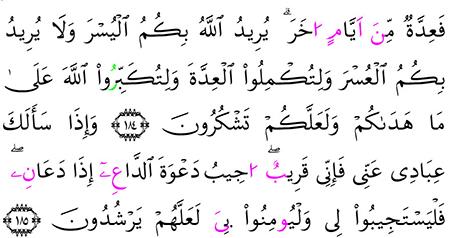 فَعِدَّةٌ مِّنَ اَيَّامٍ اخَرَ ۖ يُرِيدُ ٱللَّهُ بِكُمُ ٱلْيُسْرَ وَلَا يُرِيدُ
بِكُمُ ٱلْعُسْرَ وَلِتُكْمِلُوا۟ ٱلْعِدَّةَ وَلِتُكَبِّرُوا۟ ٱللَّهَ عَلَىٰ
مَا هَدَىٰكُمْ وَلَعَلَّكُمْ تَشْكُرُونَ ١٨٤ وَإِذَا سَأَلَكَ
عِبَادِى عَنِّى فَإِنِّى قَرِيبٌ ۖ اجِيبُ دَعْوَةَ ٱلدَّاعِۦٓ إِذَا دَعَانِۦ ۖ
فَلْيَسْتَجِيبُوا۟ لِى وَلْيُومِنُوا۟ بِىَ لَعَلَّهُمْ يَرْشُدُونَ ١٨٥